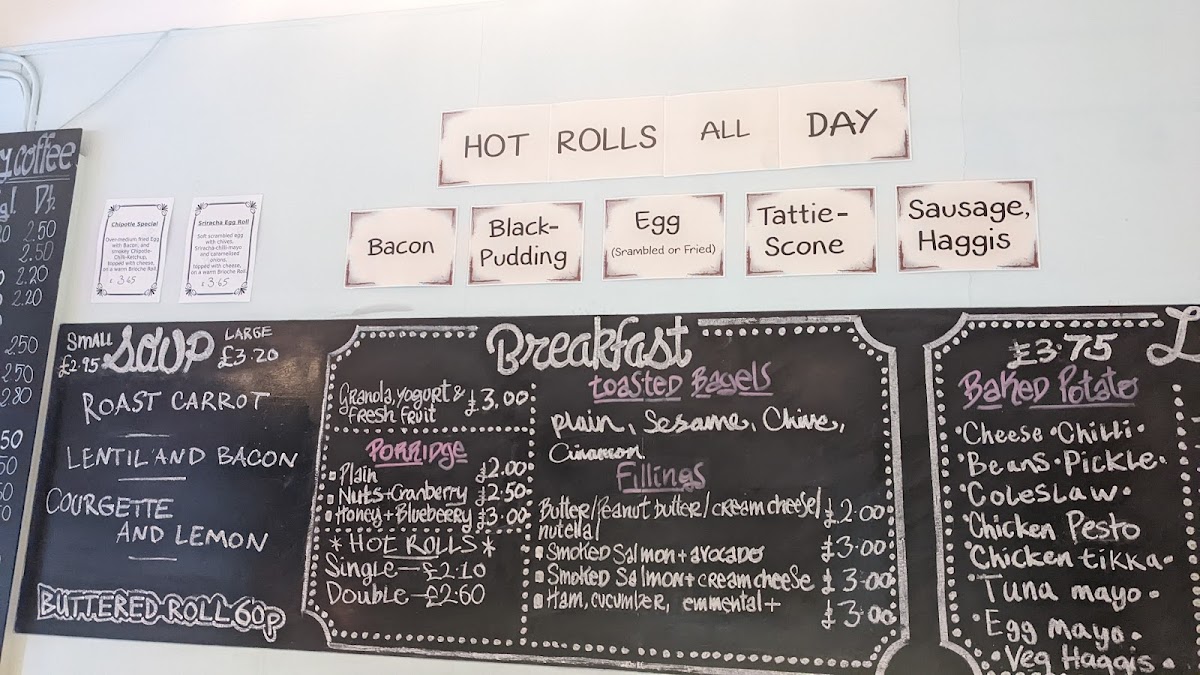 coffee
gl Dl.
2.50
2.50
2.20
2.20
2.50
2.50
2.80
Chipotle Special
Over-medium fried Egg
with Bacon, and
smokey Chipotle-
Chilli-Ketchup,
topped with cheese,
on a warm Brioche Roll.
£ 3.65
Sriracha Egg Roll
Soft scrambled egg
with chives,
Sriracha-chilli-mayo
and caramelized
onions,
topped with cheese,
on a warm Brioche Roll
£ 3.65
HOT ROLLS ALL DAY
Bacon
Black-
Pudding
Egg
(Srambled or Fried)
Tattie-
Scone
Sausage,
Haggis
SMALL SOUP LARGE
£2.95 £3.20
ROAST CARROT
LENTIL AND BACON
COURGETTE
AND LEMON
BUTTERED ROLL 60p
Breakfast
Granola, yogurt & £3.00
fresh fruit
Porridge
Plain £2.00
Nuts+Cranberry £2.50
Honey+Blueberry £3.00
*HOT ROLLS*
Single—£2.10
Double—£2.60
toasted Bagels
plain, Sesame, Chive,
Cinnamon
Fillings
Butter/Peanut butter/cream cheese/ £2.00
nutella/
Smoked Salmon+avocado £3.00
Smoked Salmon+cream cheese £3.00
Ham, cucumber, emmental+ £3.00
£3.75
Baked Potato
•Cheese •Chilli•
•Beans•Pickle•
•Coleslaw•
•Chicken Pesto
•Chicken tikka•
•Tuna mayo•
•Egg mayo•
•Veg Haggis•